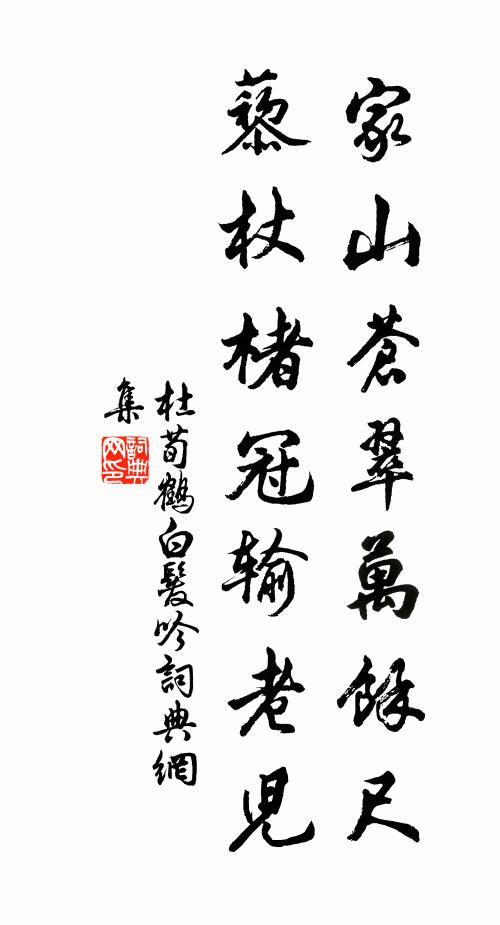 家山蒼翠萬餘尺
藜杖楮冠輸老兒
杜荀鶴白髮吟詞典網
集
詞典
网印